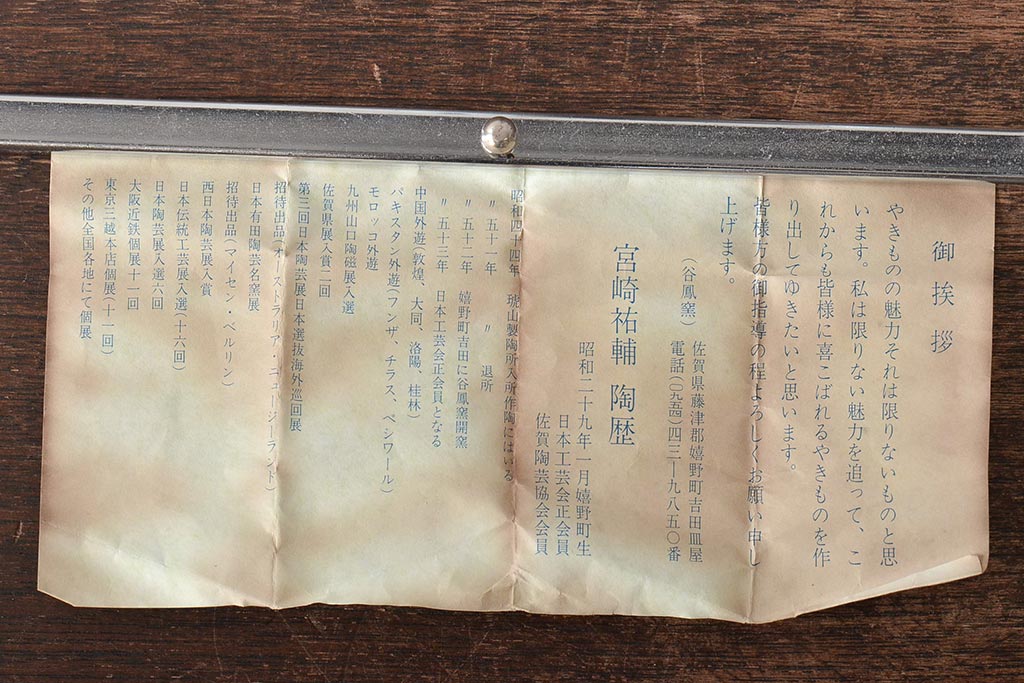 御挨拶
やきものの魅力それは限りないものと思
います。私は限りない魅力を追って、こ
れからも皆様に喜こばれるやきものを作
り出してゆきたいと思います。
皆様方の御指導の程よろしくお願い申し
上げます。
佐賀県藤津郡嬉野町吉田皿屋
(谷鳳窯) 電話(〇九五四)四三ー九八五〇番
宮崎祐輔 陶歴
昭和二十九年一月嬉野町生
日本工芸会正会員
佐賀陶芸協会会員
昭和四十四年 琥山製陶所入所作陶にはいる
〃 五十一年 〃 退所
〃 五十二年 嬉野町吉田に谷鳳窯開窯
〃 五十三年 日本工芸会正会員となる
中国外遊(敦煌、大同、洛陽、桂林)
パキスタン外遊(フンザ、チラス、ペシワール)
モロッコ外遊
九州山口陶磁展入選
佐賀県展入賞二回
第三回日本陶芸展日本選抜海外巡回展
招待出品(オーストラリア・ニュージーランド)
日本有田陶芸名窯展
招待出品(マイセン・ベルリン)
西日本陶芸展入賞
日本伝統工芸展入選(十六回)
日本陶芸展入選六回
大阪近鉄個展十一回
東京三越本店個展(十一回)
その他全国各地にて個展